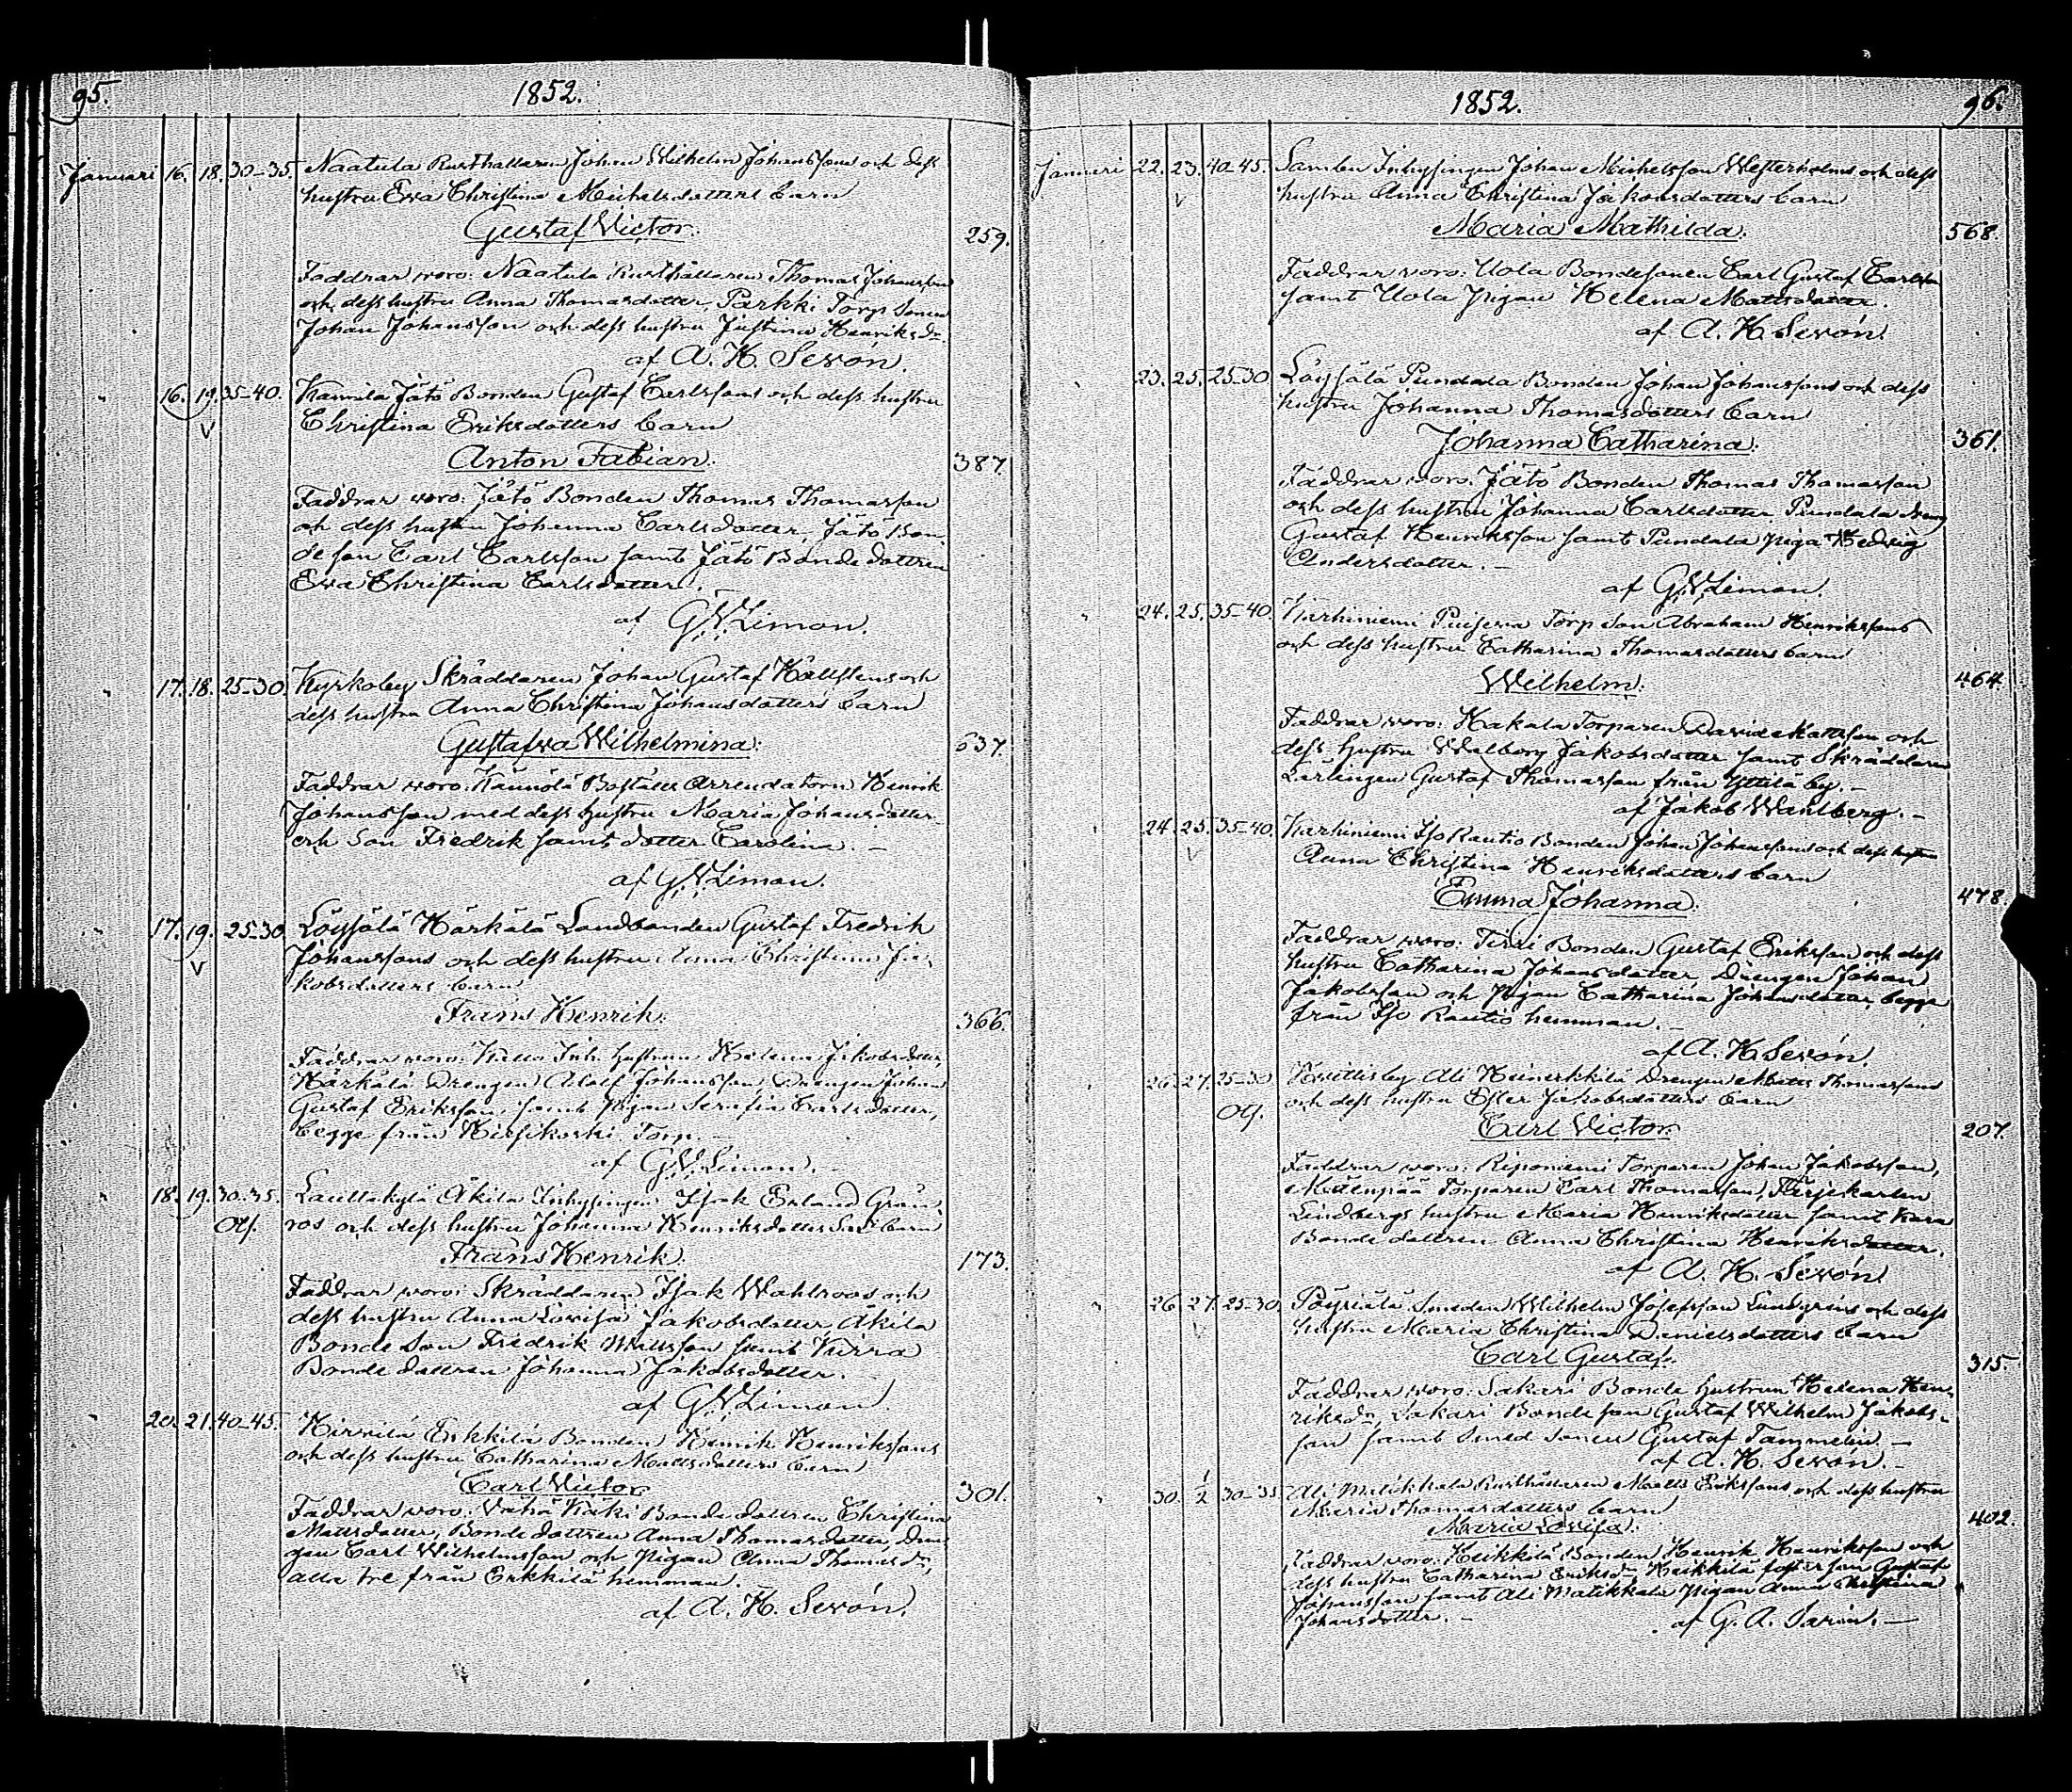 95.
1852.
Januari 16. 18. 30-35. Naatula Rusthållaren Johan Wilhelm Johanssons och dess
hustru Ewa Christina Michelsdotters barn
Gustaf Victor. 259.
Faddrar woro: Naatula Rusthållaren Thomas Johansson
och dess hustru Anna Thomasdotter, Parkki Torp Sonen
Johan Johansson och dess hustru Justina Henriksdr.
af A. H. Sevón.
" 16. 19. 35-40. Jätö Bonden Gustaf Carlssons och dess hustru
Christina Eriksdotters barn
Anton Fabian. 387.
Faddrar woro: Jätö Bonden Thomas Thomasson
och dess hustru Johanna Carlsdotter, Jätö Bon-
de son Carl Carlsson samt Jätö Bonde dottren
Ewa Christina Carlsdotter.
af G. W. Limon.
" 17. 18. 25-30. Kyrkoby Skräddaren Johan Gustaf Hällstens och
dess hustru Anna Christina Johansdotters barn
Gustafwa Wilhelmina. 637.
Faddrar woro: Boställes Arrendatorn Henrik
Johansson med dess hustru Maria Johansdotter
och Son Fredrik samt dotter Carolina. —
af G. W. Limon.
" 17. 19. 25-30 Löysälä Härkälä Landbonden Gustaf Fredrik
Johanssons och dess hustru Anna Christina Ja-
kobsdotters barn
Frans Henrik. 366.
Faddrar woro: Inh. hustrun Helena Jakobsdotter,
Härkälä Drengen Adolf Johansson, Drengen Johan
Gustaf Eriksson samt Pigan Serafia Carlsdotter,
begge från Torp. —
af G. W. Limon. —
" 18. 19. 30-35. Lauttakylä Äkilä Inhysingen Isak Erland Grön-
Ots. ros och dess hustru Johanna Henriksdotters barn
Frans Henrik. 173.
Faddrar woro: Skräddaren Isak Wahlroos och
dess hustru Anna Lovisa Jakobsdotter Äkilä
Bonde Son Fredrik Mattsson samt Kirra
Bonde dottren Johanna Jakobsdotter. —
af G. W. Limon.
" 20. 21. 40-45. Kirvilä Erkkilä Bonden Henrik Henrikssons
och dess hustru Catharina Mattsdotters barn
Carl Victor 301.
Faddrar woro: Bonde dottren Christina
Mattsdotter, Bonde dottren Anna Thomasdotter, Dren-
gen Carl Wilhelmsson och Pigan Anna Thomasdr,
alla tre från Erkkilä hemman.
af A. H. Sevón.
1852.
96.
Januari 22. 23. 40-45. Sambu Inhysingen Johan Michelsson Westerholms och dess
hustru Anna Christina Jakobsdotters barn
Maria Mathilda. 568.
Faddrar woro: Uola Bondesonen Carl Gustaf Carlsson
samt Uola Pigan Helena Mattsdotter.
af A. H. Sevón.
23. 25. 25-30 Löysälä Pundala Bonden Johan Johanssons och dess
hustru Johanna Thomasdotters barn
Johanna Catharina. 361.
Faddrar woro: Jätö Bonden Thomas Thomasson
och dess hustru Johanna Carlsdotter, Pundala dreng
Gustaf Henriksson samt Pundala piga Hedvig
Andersdotter. —
af G. W. Limon.
" 24. 25. 35-40. Karhiniemi Torp Son Abraham Henrikssons
och dess hustru Catharina Thomasdotters barn
Wilhelm. 464.
Faddrar woro: Kakala Torparen David Mattsson och
dess hustru Walborg Jakobsdotter samt Skräddare
Lärlingen Gustaf Thomasson från Yttilä by. —
af Jakob Wahlberg. —
" 24. 25. 35-40. Karhiniemi Iso Rautio Bonden Johan Johanssons och dess hustru
Anna Christina Henriksdotters barn
Emma Johanna. 478.
Faddrar woro: Tirri Bonden Gustaf Eriksson och dess
hustru Catharina Johansdotter, Drengen Johan
Jakobsson och Pigan Catharina Johansdotter, begge
från Iso Rautio hemman. —
af A. H. Sevón
" 26. 27. 25-30 Huittisby Ali Heinerkkilä Drengen Matts Thomassons
Ots. och dess hustru Ester Jakobsdotters barn
Carl Victor. 207.
Faddrar woro: Riponiemi Torparen Johan Jakobsson,
Torparen Carl Thomasson, Färjekarlen
Lindbergs hustru Maria Henriksdotter samt
Bonde dottren Anna Christina Henriksdotter.
af A. H. Sevón
" 26. 27. 25-30 Pöyriälä Smeden Wilhelm Josefsson Lindgrens och dess
hustru Maria Christina Danielsdotters barn
Carl Gustaf. 315.
Faddrar woro: Sakari Bonde hustrun Helena Hen-
riksdr, Sakari Bonde son Gustaf Wilhelm Jakobs-
son samt Smed Sonen Gustaf Tammelin. —
af A. H. Sevón. —
" 30. 1/2 30-35 Ali Matikkala Rusthållaren Matts Erikssons och dess hustru
Maria Thomasdotters barn
Maria Lovisa. 402.
Faddrar woro: Heikkilä Bonden Henrik Henriksson och
dess hustru Catharina Eriksdr, Heikkilä foster son Gustaf
Johansson samt Ali Matikkala Pigan Anna Christina
Johansdotter. — af G. A. Sarin. —